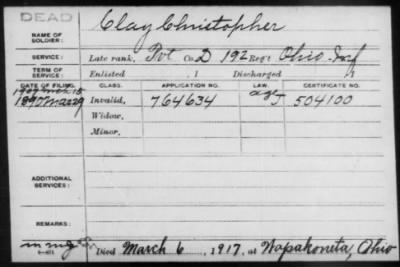 DEAD
Clay Christopher
NAME OF SOLDIER:
SERVICE: Late rank, Pvt Co. D 192 Reg't Ohio Inf
TERM OF SERVICE: Enlisted , 1 Discharged , 1
DATE OF FILING. CLASS. APPLICATION NO. LAW. CERTIFICATE NO.
1907
1890 Mar 29 Invalid, 764634 age J 504100
Widow,
Minor,
ADDITIONAL SERVICES:
REMARKS:
Died March 6, 1917, at Wapakoneta, Ohio